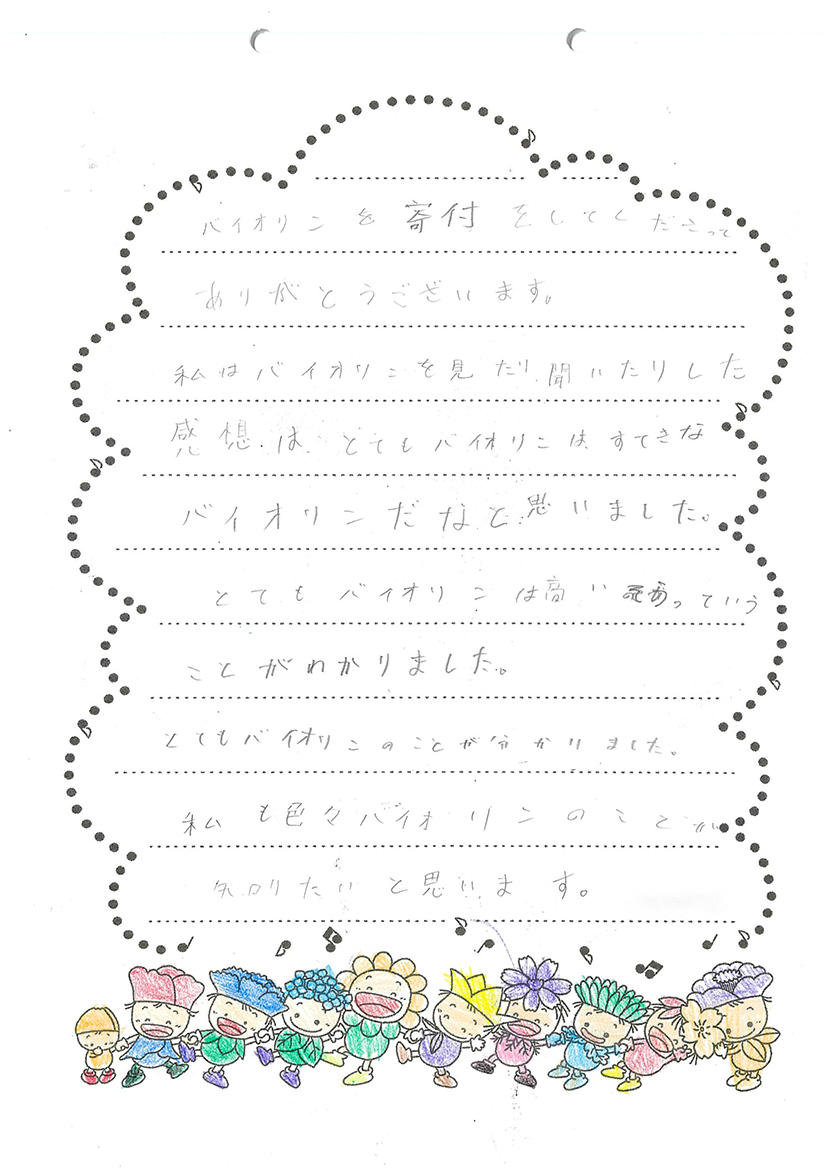 バイオリンを寄付をしてくださって
ありがとうございます。
私はバイオリンを見たり聞いたりした
感想は、とてもバイオリンは、すてきな
バイオリンだなと思いました。
とてもバイオリンは高いっていう
ことがわかりました。
とてもバイオリンのことが分かりました。
私も色々バイオリンのことが
知りたいと思います。